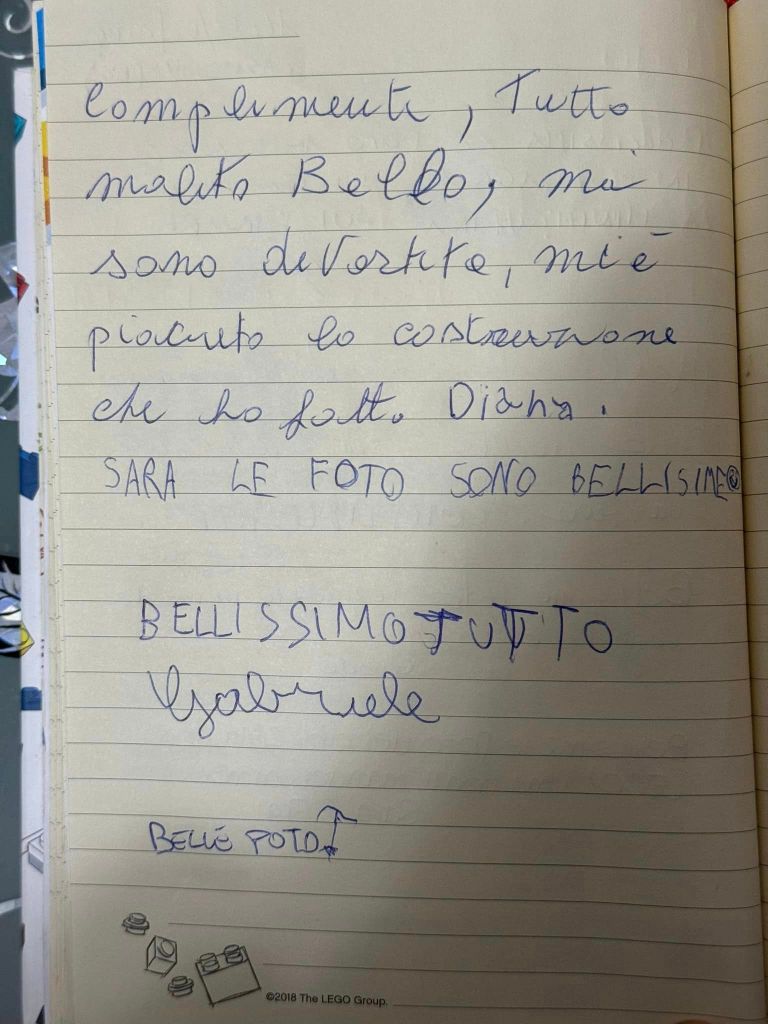 Complimenti, Tutto
molto Bello, mi
sono divertita, mi è
piaciuto la costruzione
che ho fatto. Diana.
SARA LE FOTO SONO BELLISIME
BELLISSIMO TUTTO
Gabriele
BELLE FOTO
©2018 The LEGO Group.